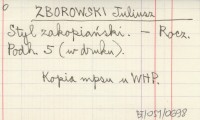 ZBOROWSKI Juliusz
Styl zakopiański. — Rocz.
Podh. 5 (w druku).
Kopia mpsu u WHP.